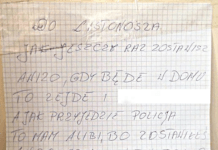 DO LISTONOSZA
JAK JESZCZE RAZ ZOSTAWISZ
AWIZO, GDY BĘDĘ W DOMU
TO ZEJDĘ I
A JAK PRZYJEDZIE POLICJA
TO MAM ALIBI, BO ZOSTAWIŁEŚ